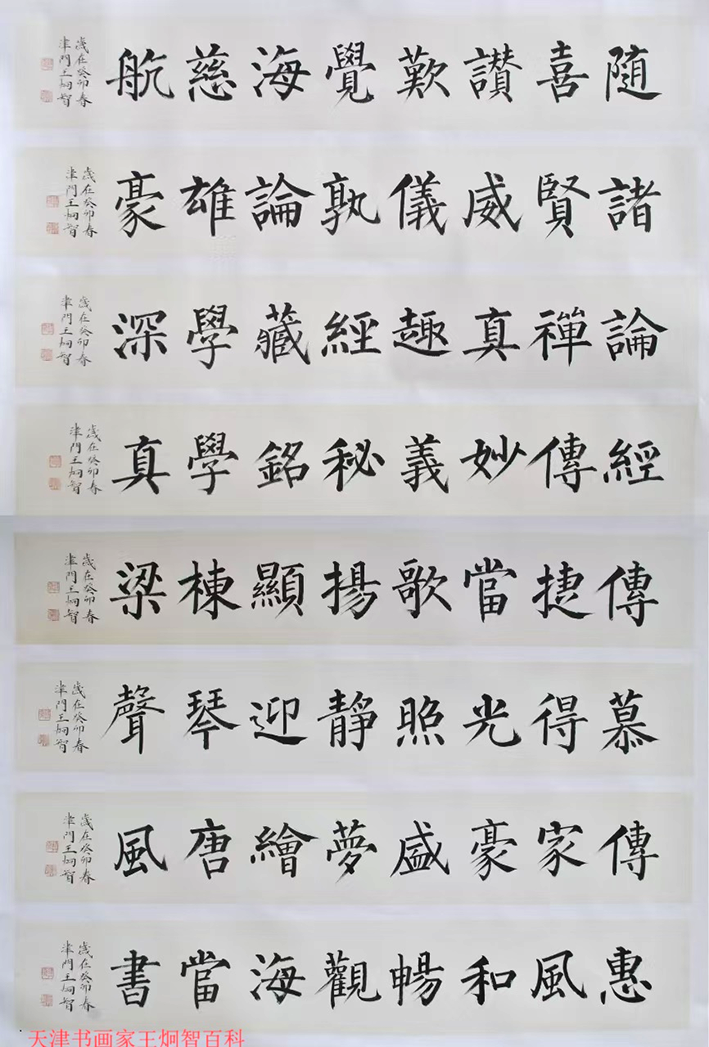 隨喜讃歎覺海慈航
歲在癸卯春
津門王炯智
諸賢威儀孰論雄豪
歲在癸卯春
津門王炯智
論禪真趣經藏學深
歲在癸卯春
津門王炯智
經傳妙義秘銘學真
歲在癸卯春
津門王炯智
傳捷當歌揚顯棟梁
歲在癸卯春
津門王炯智
慕得光照靜迎琴聲
歲在癸卯春
津門王炯智
傳家豪盛夢繪唐風
歲在癸卯春
津門王炯智
惠風和暢觀海當書
歲在癸卯春
津門王炯智
天津书画家王炯智百科